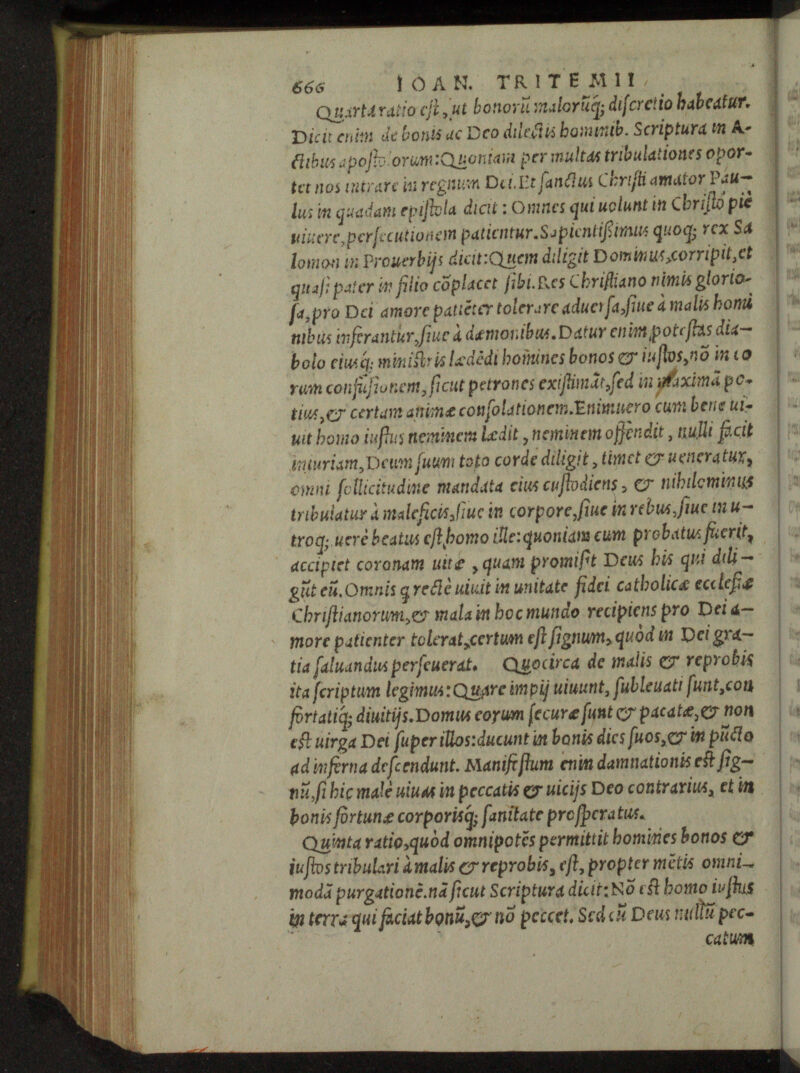 666 IOAN. TRITEMII
Quarta ratio est, ut bonorũ malorũq; discretio habeatur.
Dicit enim de bonis ac Deo dilectis hominib. Scriptura in A-
ctibus apostolorum: Quoniam per multas tribulationes opor-
tet nos intrare in regnum Dei. Et sanctus Christi amator Pau-
lus in quadam epistola dicit: Omnes qui uolunt in Christo pie
uiuere, persecutionem patientur. Sapientissimus quoq; rex Sa
lomon in Prouerbijs dicit: Quem diligit Dominus, corripit, et
quasi pater in filio cõplacet sibi. Res Christiano nimis glorio-
sa, pro Dei amore patiẽter tolerare aduersa, siue à malis homi
nibus inferantur, siue à dæmonibus. Datur enim potestas dia-
bolo eiusq; ministris lædẽdi homines bonos & iustos, nõ in eo
rum confusionem, sicut petrones existimãt, sed in maxima po-
tius, & certam animæ consolationem. Enimuero cum bene ui-
uit homo iustus neminem lædit, neminem offendit, nulli facit
iniuriam, Deum suum toto corde diligit, timet & ueneratur,
omni sollicitudine mandata eius custodiens, & nihilominus
tribulatur à maleficis, siue in corpore, siue in rebus, siue in u-
troq; uerè beatus est homo ille: quoniam cum probatus fuerit,
accipiet coronam uitæ, quam promisit Deus his qui dili-
gũt eũ. Omnis q rectè uiuit in unitate fidei catholicæ ecclesiæ
Christianorum, & mala in hoc mundo recipiens pro Dei a-
more patienter tolerat, certum est signum, quòd in Dei gra-
tia saluandus perseuerat. Quocirca de malis & reprobis
ita scriptum legimus: Quare impij uiuunt, subleuati sunt, con
fortatiq; diuitijs. Domus eorum securæ sunt & pacatæ, & non
est uirga Dei super illos: ducunt in bonis dies suos, & in pũcto
ad inferna descendunt. Manifestum enim damnationis est sig-
nũ, si hic malè uiuas in peccatis & uicijs Deo contrarius, et in
bonis fortunæ corporisq; sanitate prosperatus.
Quinta ratio, quòd omnipotẽs permittit homines bonos &
iustos tribulari à malis & reprobis, est, propter mẽtis omni-
modã purgationẽ. nã sicut Scriptura dicit: Nõ est homo iustus
in terra qui faciat bonũ, & nõ peccet. Sed cũ Deus nullũ pec-
catum